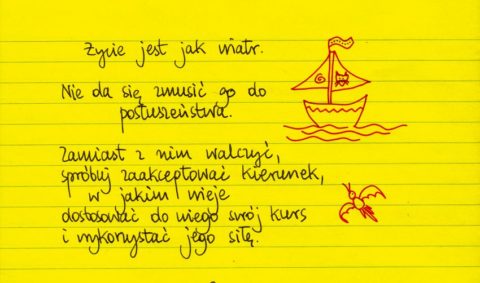 Życie jest jak wiatr.
Nie da się zmusić go do
posłuszeństwa.
Zamiast z nim walczyć,
spróbuj zaakceptować kierunek,
w jakim wieje
dostosować do niego swój kurs
i wykorzystać jego siłę.